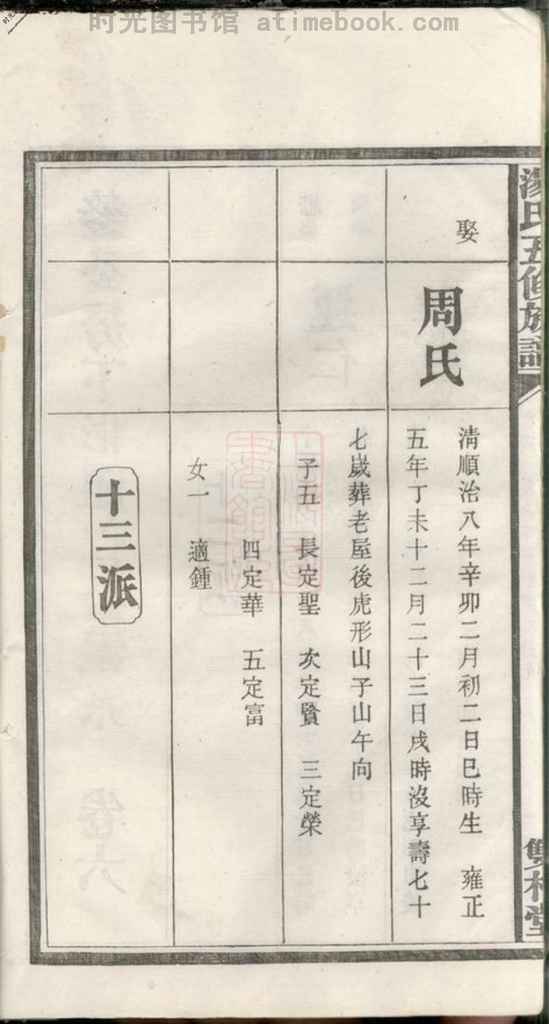 时光图书馆 atimebook.com
湯氏五修族譜
娶
周氏
清順治八年辛卯二月初二日巳時生 雍正
五年丁未十二月二十三日戌時沒享壽七十
七歲葬老屋後虎形山子山午向
子五 長定聖 次定賢 三定榮
四定華 五定富
女一 適鍾
十三派